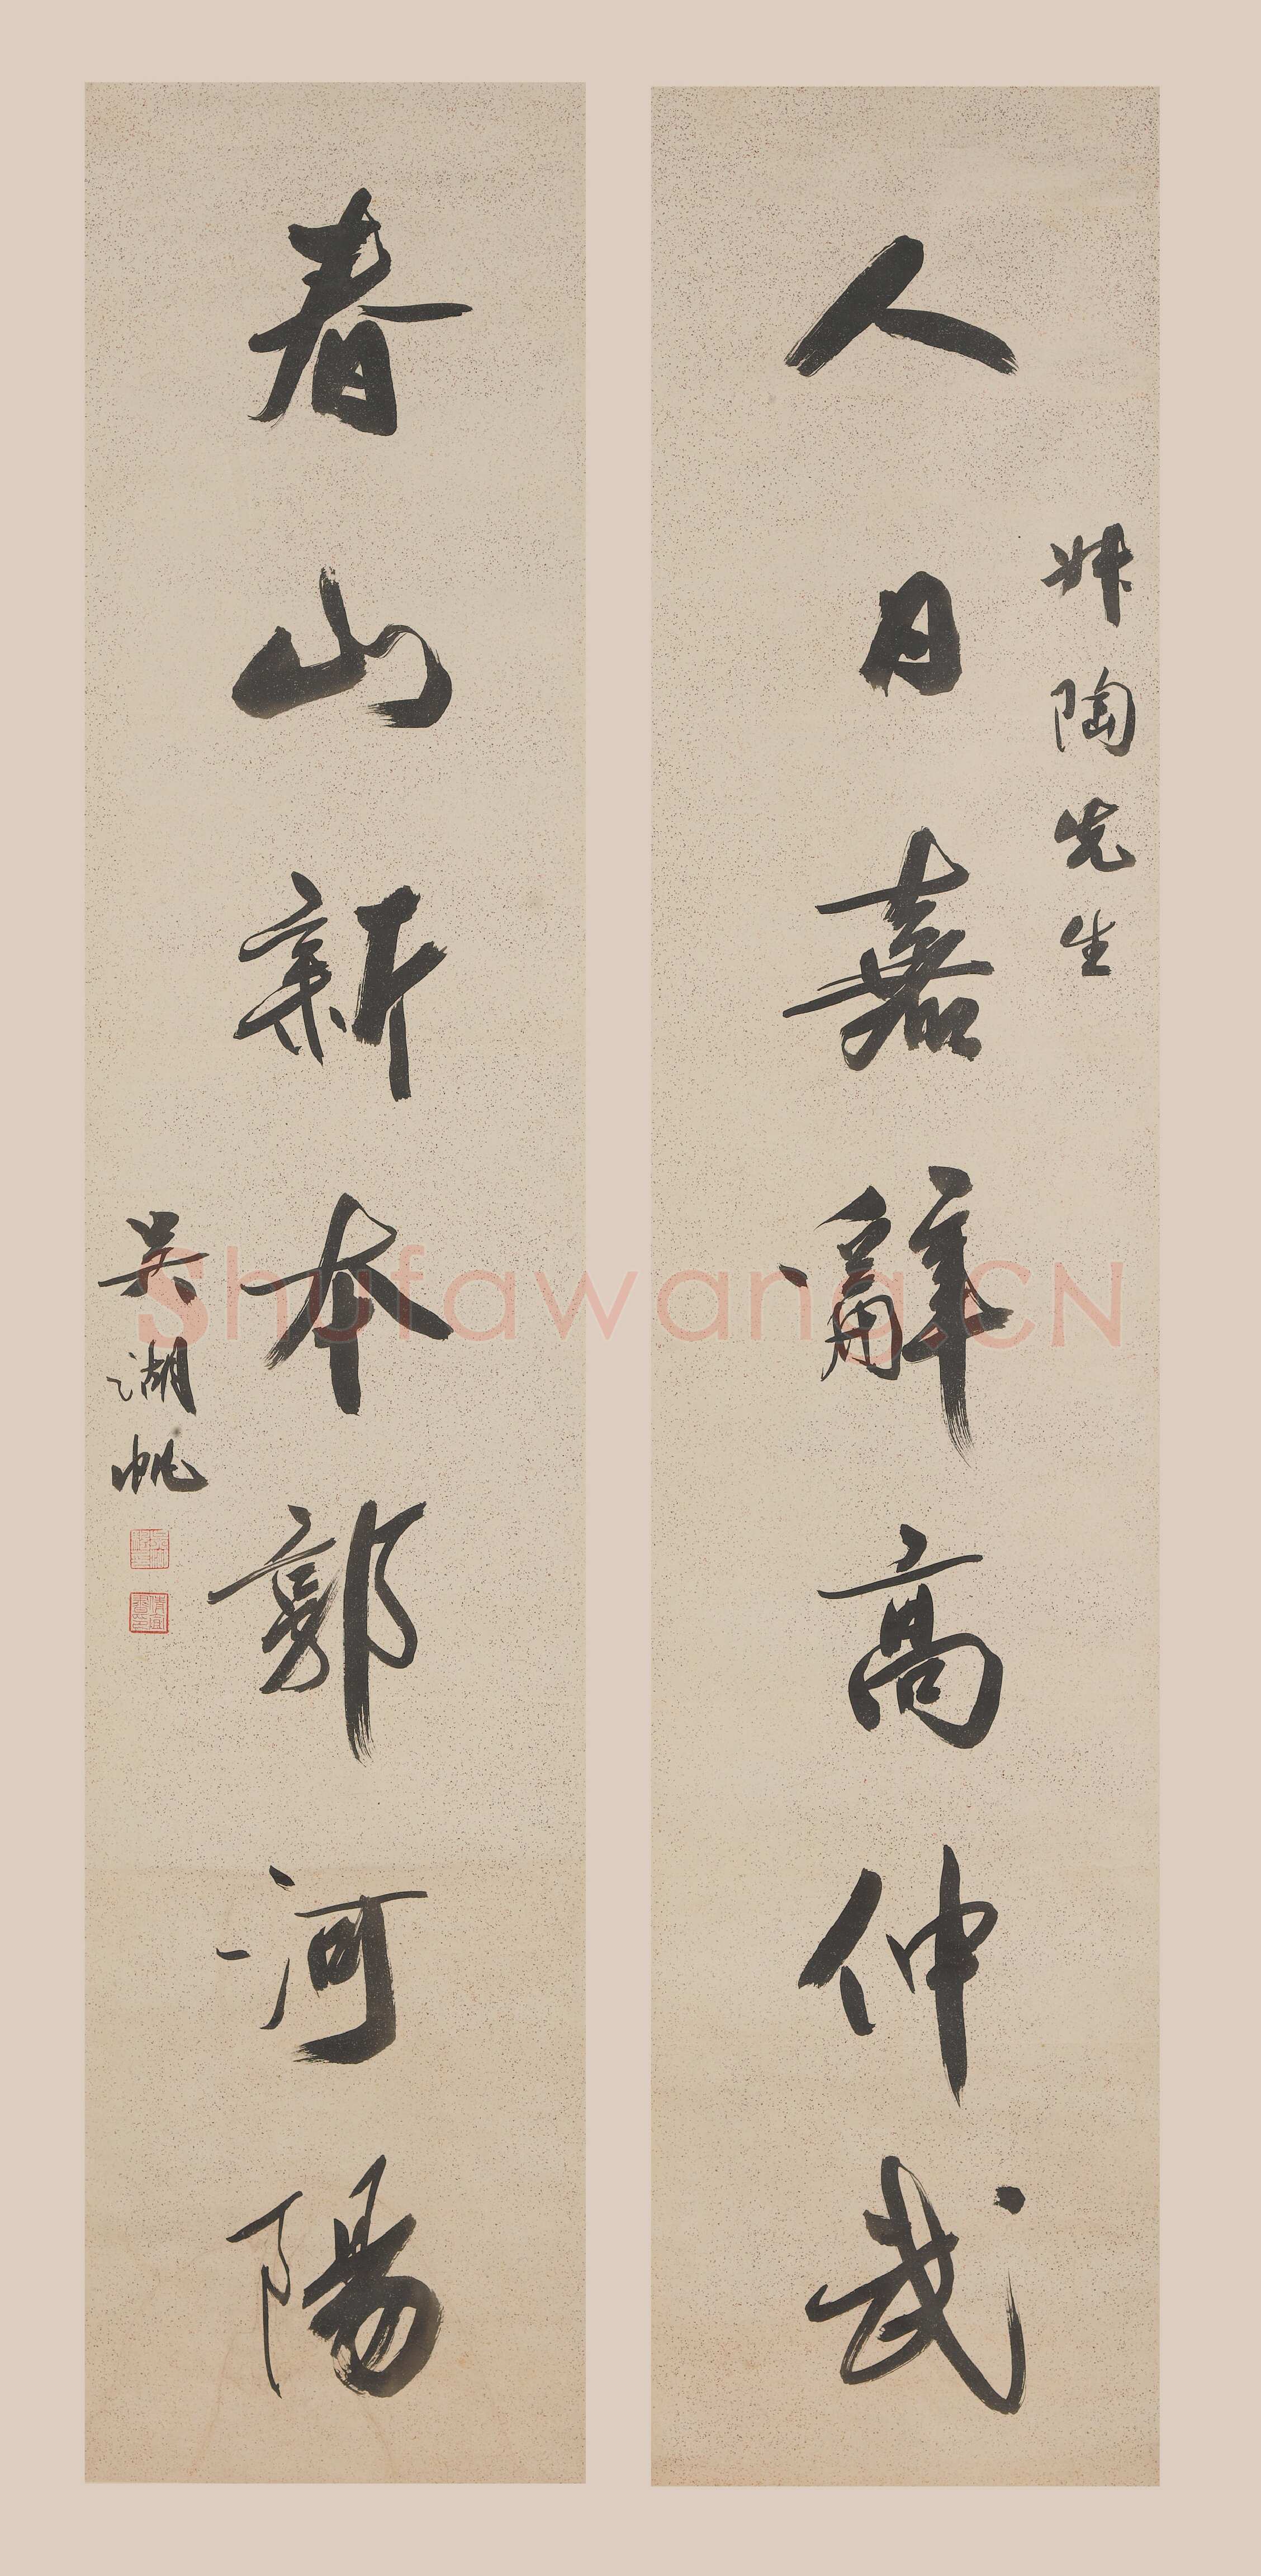 人日嘉辭高仲武
叔陶先生
春山新本郭河陽
吳湖帆
Shufawang.CN